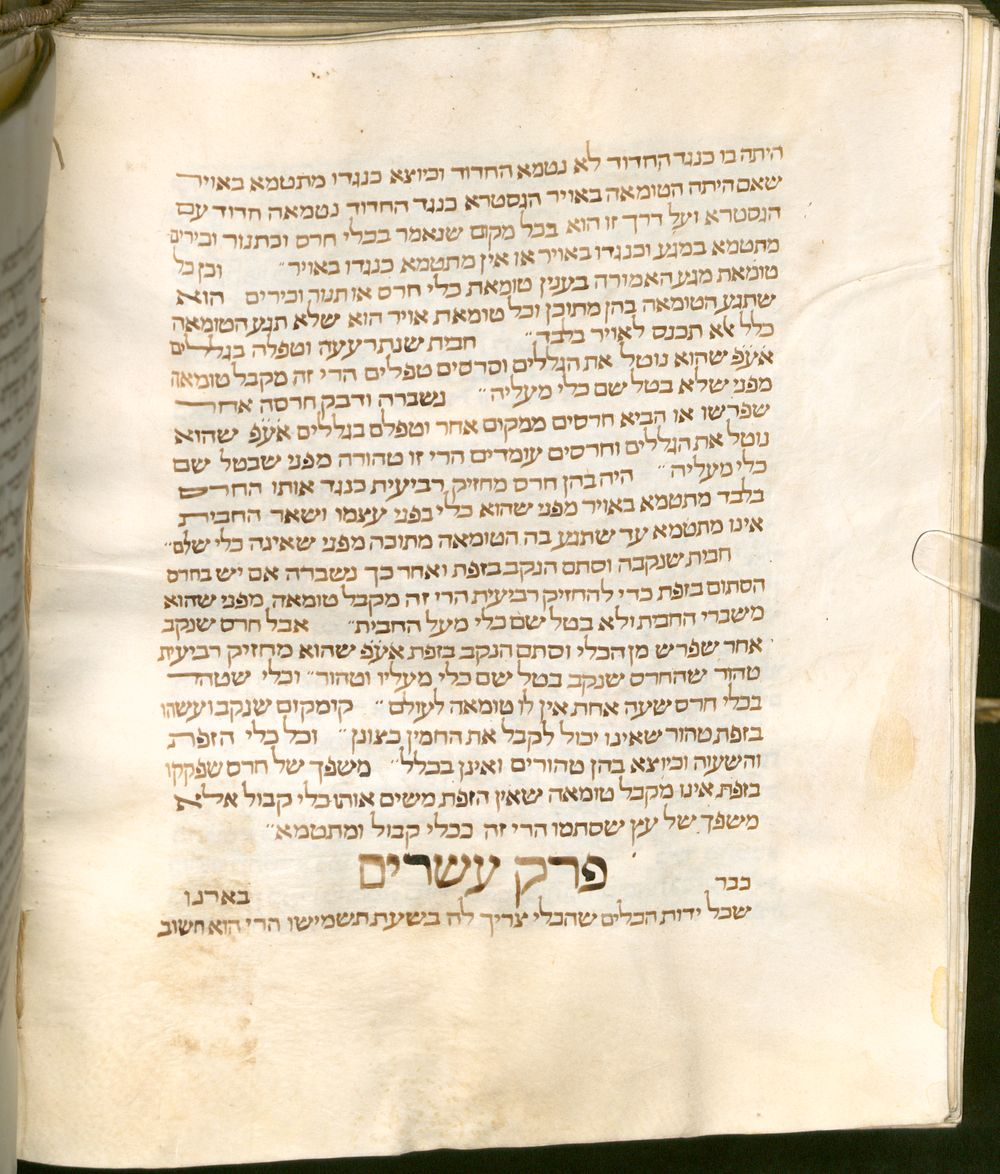 היתה בו כנגד החדוד לא נטמא החדוד וכיוצא כנגדו מתטמא באויר
שאם היתה הטומאה באויר הגסטרא כנגד החדוד נטמאה חדוד עם
הגסטרא ועל דרך זו הוא בכל מקום שנאמר בכלי חרס ובתנור וכירים
מתטמא במגע וכנגדו באויר או אין מתטמא כנגדו באויר״ וכן כל
טומאת מגע האמורה בענין טומאת כלי חרס או תנור וכירים הוא
שתגע הטומאה בהן מתוכן וכל טומאת אויר הוא שלא תגע הטומאה
כלל לא תכנס לאויר בלבד״ חבית שנתרעעה וטפלה בגללים
אעפ שהוא נוטל את הגללים וסרסים טפלים הרי זה מקבל טומאה
מפני שלא בטל שם כלי מעליה״ נשברה ודבק חרסה אחר
שפרשו או הביא חרסים ממקום אחר וטפלם בגללים אעפ שהוא
נוטל את הגללים וחרסים עומדים הרי זו טהורה מפני שבטל שם
כלי מעליה״ היה בהן חרס מחזיק רביעית כנגד אותו החרס
בלבד מתטמא באויר מפני שהוא כלי בפני עצמו ושאר החבית
אינו מתטמא עד שתגע בה הטומאה מתוכה מפני שאינה כלי שלם״
חבית שנקבה וסתם הנקב בזפת ואחר כך נשברה אם יש בחרס
הסתום בזפת כדי להחזיק רביעית הרי זה מקבל טומאה מפני שהוא
משברי החבית ולא בטל שם כלי מעל החבית״ אבל חרס שנקב
אחר שפרש מן הכלי וסתם הנקב בזפת אעפ שהוא מחזיק רביעית
טהור שהחרס שנקב בטל שם כלי מעליו וטהור״ וכלי שטהר
בכלי חרס שעה אחת אין לו טומאה לעולם״ קומקום שנקב ועשהו
בזפת טהור שאינו יכול לקבל את החמין כצונן״ וכל כלי הזפת
והשעוה וכיוצא בהן טהורים ואינן בכלל״ משפך של חרס שפקקו
בזפת אינו מקבל טומאה שאין הזפת משים אותו כלי קבול אלא
משפך של עץ שסתמו הרי זה ככלי קבול ומתטמא״
פרק עשרים
כבר בארנו
שכל ידות הכלים שהכלי צריך לה בשעת תשמישו הרי הוא חשוב